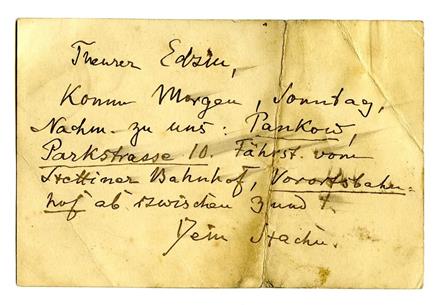 Theurer Edzin,
Komm Morgen, Sonntag,
Nachm. zu uns: Pankow,
Parkstrasse 10. Fährst vom
Stettiner Bahnhof, Vorortsbahn-
hof ab zwischen 3 und
Dein Stachu.